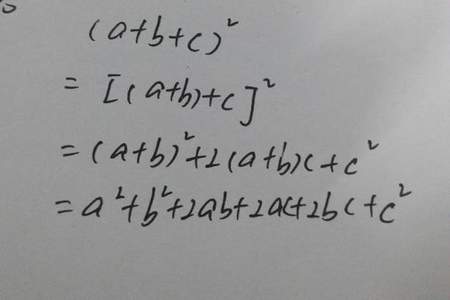 (a+b+c)²
= [(a+b)+c]²
= (a+b)²+2(a+b)c+c²
= a²+b²+2ab+2ac+2bc+c²